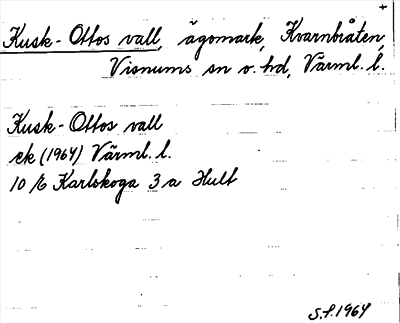 +
Kusk-Ottos vall, ägomark, Kvarnbråten,
Visnums sn o. hd, Värml. l.
Kusk-Ottos vall
ek (1964) Värml. l.
10 E Karlskoga 3 a Hult
S.f. 1964